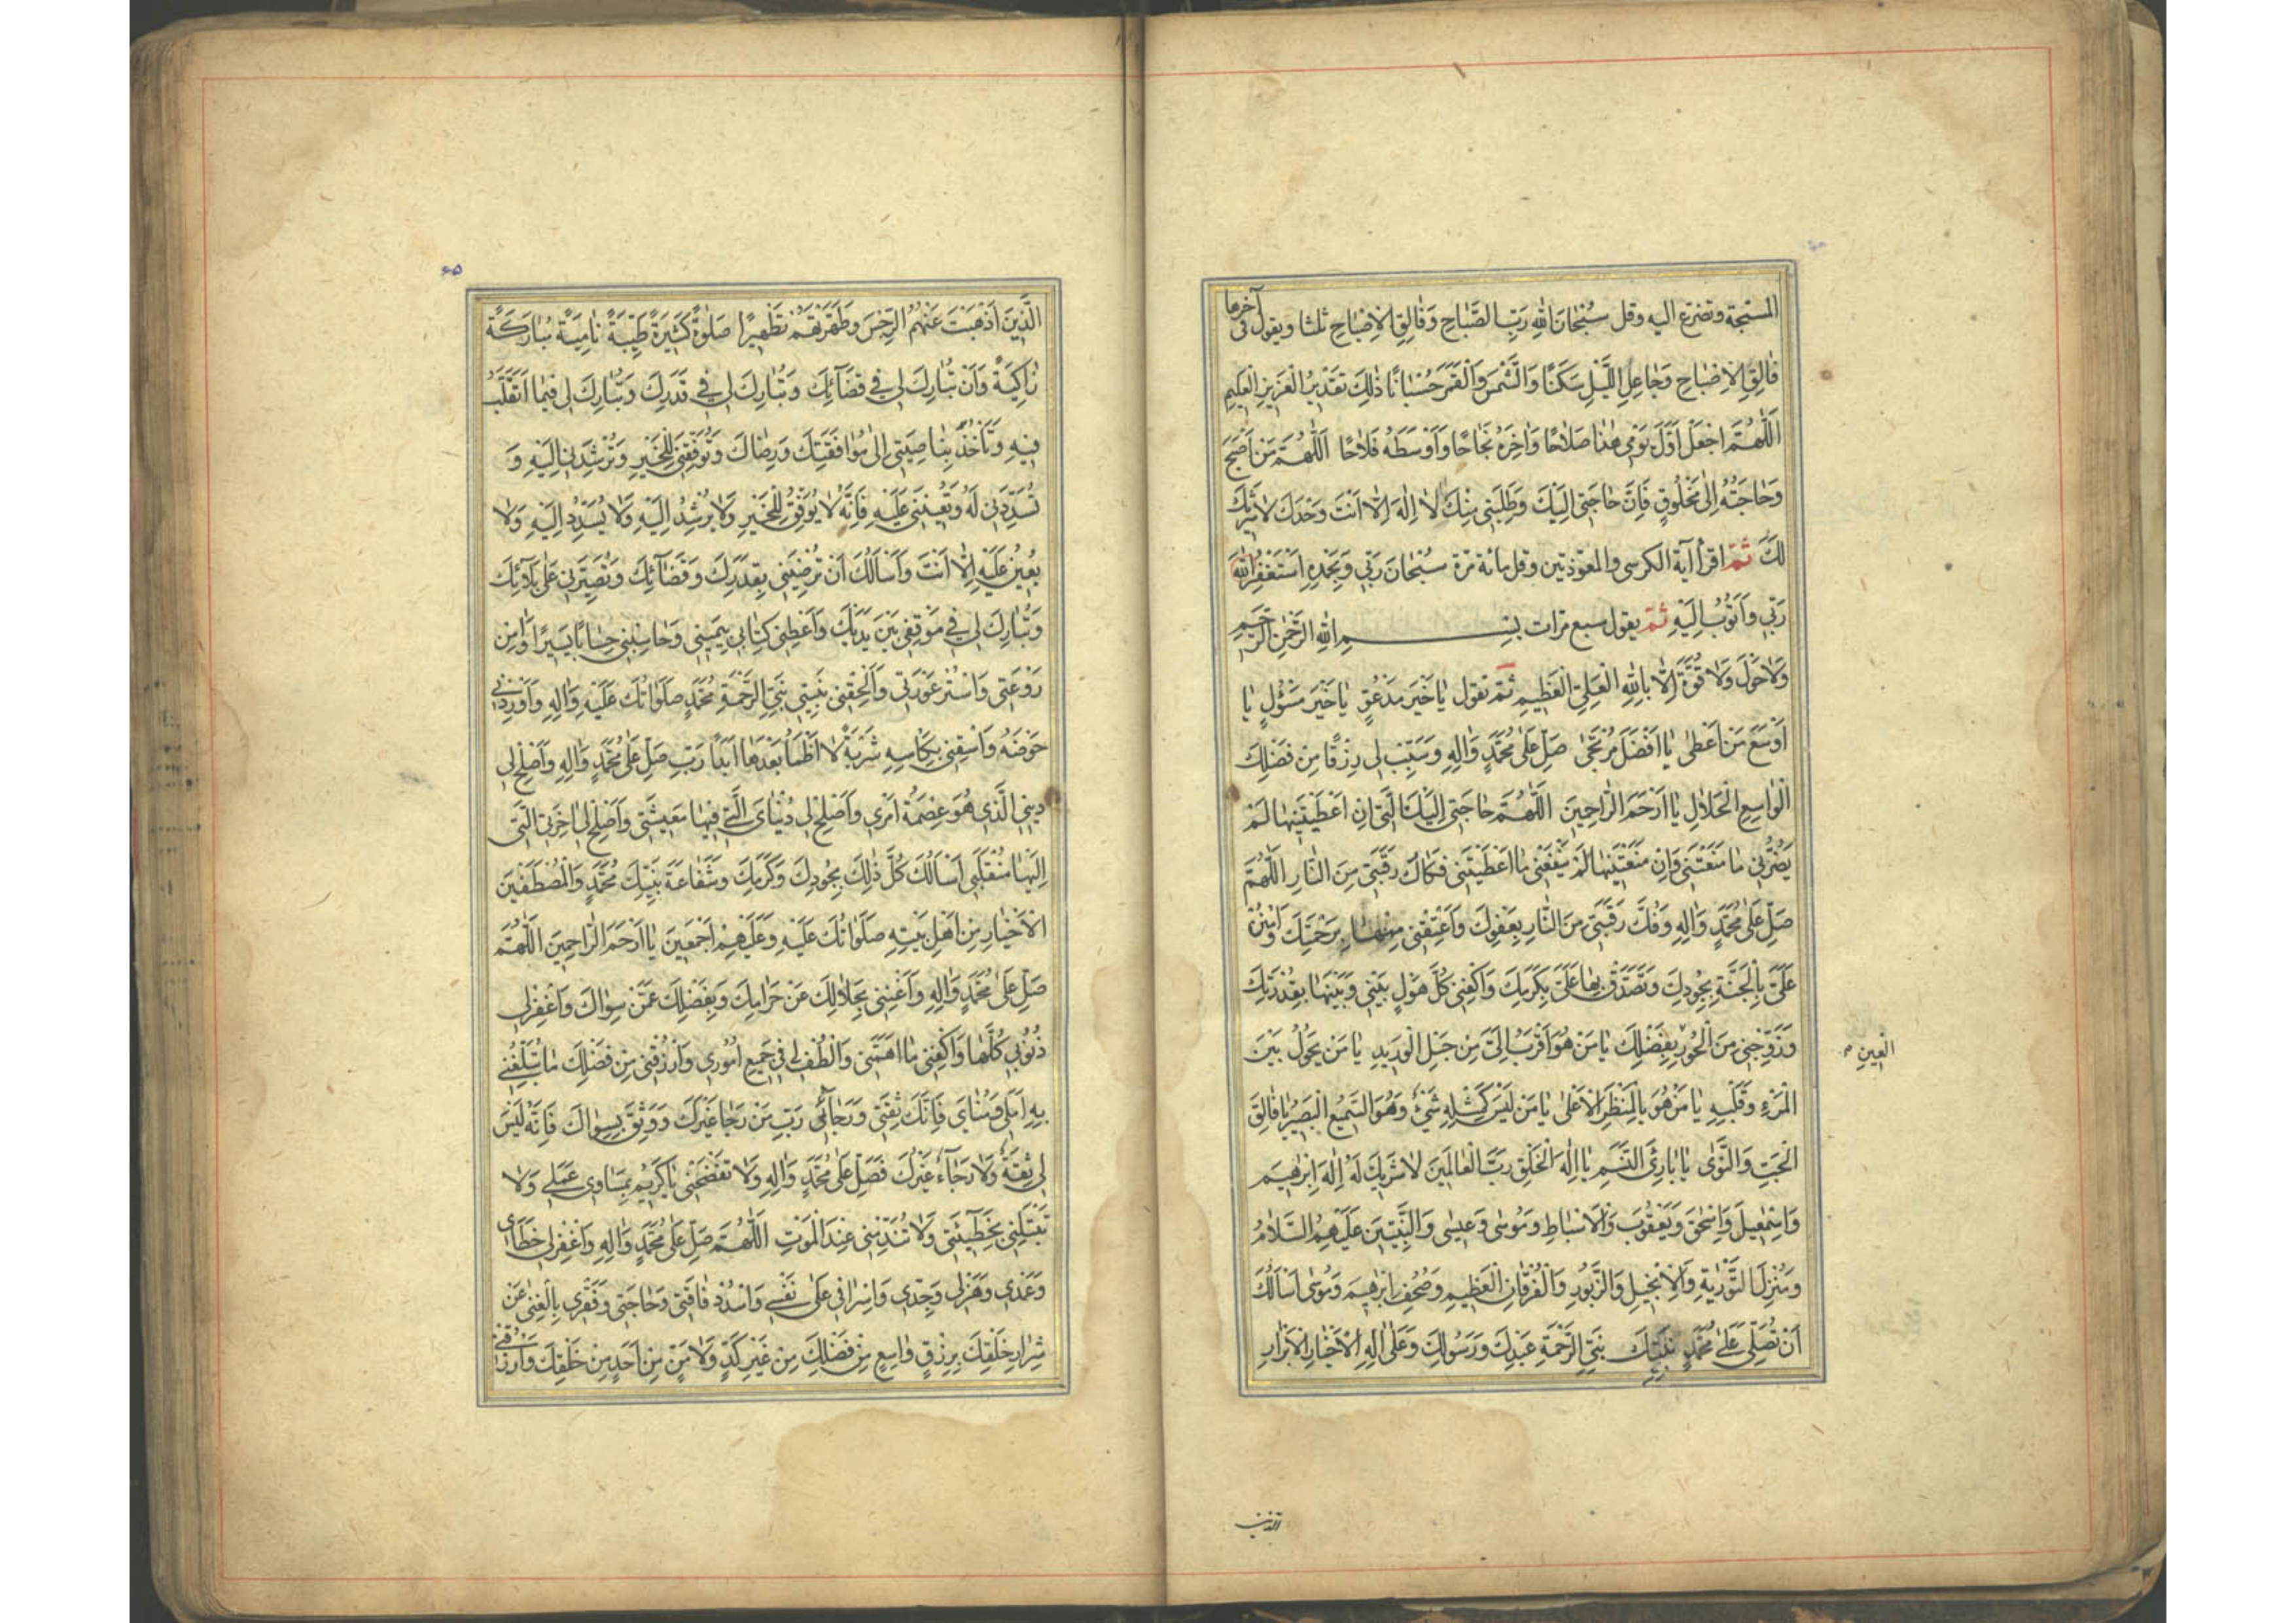 المسبّحة وتضرّع اليه وقل سُبْحَانَ اللهِ رَبِّ الصَّبَاحِ وَفَالِقِ الْاِصْبَاحِ ثلثا ويقول فى آخرها
فَالِقِ الْاِصْبَاحِ وَجَاعِلِ اللَّيْلِ سَكَنًا وَالشَّمْسَ وَالْقَمَرَ حُسْبَانًا ذٰلِكَ تَقْدِيرُ الْعَزِيزِ الْعَلِيمِ
اَللّٰهُمَّ اجْعَلْ اَوَّلَ يَوْمِى هٰذَا صَلَاحًا وَاٰخِرَهُ نَجَاحًا وَاَوْسَطَهُ فَلَاحًا اَللّٰهُمَّ مَنْ اَصْبَحَ
وَحَاجَتُهُ اِلٰى مَخْلُوقٍ فَاِنَّ حَاجَتِى اِلَيْكَ وَطَلِبَتِى مِنْكَ لَا اِلٰهَ اِلَّا اَنْتَ وَحْدَكَ لَا شَرِيكَ
لَكَ ثمّ اقرأ آية الكرسى والمعوّذتين وقل مائة مرّة سُبْحَانَ رَبِّى وَبِحَمْدِهِ اَسْتَغْفِرُ اللهَ
رَبِّى وَاَتُوبُ اِلَيْهِ ثمّ يقول سبع مرات بِسْمِ اللهِ الرَّحْمٰنِ الرَّحِيمِ
وَلَا حَوْلَ وَلَا قُوَّةَ اِلَّا بِاللهِ الْعَلِيِّ الْعَظِيمِ ثمّ تقول يَا خَيْرَ مَدْعُوٍّ يَا خَيْرَ مَسْؤُلٍ يَا
اَوْسَعَ مَنْ اَعْطٰى يَا اَفْضَلَ مُرْتَجٰى صَلِّ عَلٰى مُحَمَّدٍ وَاٰلِهِ وَسَبِّبْ لِى رِزْقًا مِنْ فَضْلِكَ
الْوَاسِعِ الْحَلَالِ يَا اَرْحَمَ الرَّاحِمِينَ اَللّٰهُمَّ حَاجَتِى اِلَيْكَ الَّتِى اِنْ اَعْطَيْتَنِيهَا لَمْ
يَضُرَّنِى مَا مَنَعْتَنِى وَاِنْ مَنَعْتَنِيهَا لَمْ يَنْفَعْنِى مَا اَعْطَيْتَنِى فَكَاكَ رَقَبَتِى مِنَ النَّارِ اَللّٰهُمَّ
صَلِّ عَلٰى مُحَمَّدٍ وَاٰلِهِ وَفُكَّ رَقَبَتِى مِنَ النَّارِ بِعَفْوِكَ وَاَعْتِقْنِى مِنْهَا بِرَحْمَتِكَ وَامْنُنْ
عَلَيَّ بِالْجَنَّةِ بِجُودِكَ وَتَصَدَّقْ بِهَا عَلَيَّ بِكَرَمِكَ وَاكْفِنِى كُلَّ هَوْلٍ بَيْنِى وَبَيْنَهَا بِقُدْرَتِكَ
وَزَوِّجْنِى مِنَ الْحُورِ بِفَضْلِكَ يَا مَنْ هُوَ اَقْرَبُ اِلَيَّ مِنْ حَبْلِ الْوَرِيدِ يَا مَنْ يَحُولُ بَيْنَ
العِينِ
الْمَرْءِ وَقَلْبِهِ يَا مَنْ هُوَ بِالْمَنْظَرِ الْاَعْلٰى يَا مَنْ لَيْسَ كَمِثْلِهِ شَيْءٌ وَهُوَ السَّمِيعُ الْبَصِيرُ يَا فَالِقَ
الْحَبِّ وَالنَّوٰى يَا بَارِئَ النَّسَمِ يَا اِلٰهَ الْخَلْقِ رَبَّ الْعَالَمِينَ لَا شَرِيكَ لَهُ اِلٰهَ اِبْرٰهِيمَ
وَاِسْمٰعِيلَ وَاِسْحٰقَ وَيَعْقُوبَ وَالْاَسْبَاطِ وَمُوسٰى وَعِيسٰى وَالنَّبِيِّينَ عَلَيْهِمُ السَّلَامُ
وَمُنْزِلَ التَّوْرٰيةِ وَالْاِنْجِيلِ وَالزَّبُورِ وَالْفُرْقَانِ الْعَظِيمِ وَصُحُفِ اِبْرٰهِيمَ وَمُوسٰى اَسْاَلُكَ
اَنْ تُصَلِّيَ عَلٰى مُحَمَّدٍ نَبِيِّكَ نَبِيِّ الرَّحْمَةِ عَبْدِكَ وَرَسُولِكَ وَعَلٰى اٰلِهِ الْاَخْيَارِ الْاَبْرَارِ
الذين
۶۵
الَّذِينَ اَذْهَبْتَ عَنْهُمُ الرِّجْسَ وَطَهَّرْتَهُمْ تَطْهِيرًا صَلٰوةً كَثِيرَةً طَيِّبَةً نَامِيَةً مُبَارَكَةً
زَاكِيَةً وَاَنْ تُبَارِكَ لِى فِى قَضَآئِكَ وَتُبَارِكَ لِى فِى قَدَرِكَ وَتُبَارِكَ لِى فِيمَا اَتَقَلَّبُ
فِيهِ وَتَأْخُذَ بِنَاصِيَتِى اِلٰى مُوَافَقَتِكَ وَرِضَاكَ وَتُوَفِّقَنِى لِلْخَيْرِ وَتُرْشِدَنِى اِلَيْهِ وَ
تُسَدِّدَنِى لَهُ وَتُعِينَنِى عَلَيْهِ فَاِنَّهُ لَا يُوَفِّقُ لِلْخَيْرِ وَلَا يُرْشِدُ اِلَيْهِ وَلَا يُسَدِّدُ اِلَيْهِ وَلَا
يُعِينُ عَلَيْهِ اِلَّا اَنْتَ وَاَسْاَلُكَ اَنْ تُرْضِيَنِى بِقَدَرِكَ وَقَضَآئِكَ وَتُصَبِّرَنِى عَلٰى بَلَآئِكَ
وَتُبَارِكَ لِى فِى مَوْقِفِى بَيْنَ يَدَيْكَ وَاَعْطِنِى كِتَابِى بِيَمِينِى وَحَاسِبْنِى حِسَابًا يَسِيرًا وَاٰمِنْ
رَوْعَتِى وَاسْتُرْ عَوْرَتِى وَاَلْحِقْنِى بِنَبِيِّى نَبِيِّ الرَّحْمَةِ مُحَمَّدٍ صَلَوَاتُكَ عَلَيْهِ وَاٰلِهِ وَاَوْرِدْنِى
حَوْضَهُ وَاسْقِنِى بِكَاْسِهِ شَرْبَةً لَا اَظْمَأُ بَعْدَهَا اَبَدًا رَبِّ صَلِّ عَلٰى مُحَمَّدٍ وَاٰلِهِ وَاَصْلِحْ لِى
دِينِىَ الَّذِى هُوَ عِصْمَةُ اَمْرِى وَاَصْلِحْ لِى دُنْيَايَ الَّتِى فِيهَا مَعِيشَتِى وَاَصْلِحْ لِى اٰخِرَتِىَ الَّتِى
اِلَيْهَا مُنْقَلَبِى اَسْاَلُكَ كُلَّ ذٰلِكَ بِجُودِكَ وَكَرَمِكَ وَشَفَاعَةِ نَبِيِّكَ مُحَمَّدٍ وَالْمُصْطَفَيْنَ
الْاَخْيَارِ مِنْ اَهْلِ بَيْتِهِ صَلَوَاتُكَ عَلَيْهِ وَعَلَيْهِمْ اَجْمَعِينَ يَا اَرْحَمَ الرَّاحِمِينَ اَللّٰهُمَّ
صَلِّ عَلٰى مُحَمَّدٍ وَاٰلِهِ وَاَغْنِنِى بِحَلَالِكَ عَنْ حَرَامِكَ وَبِفَضْلِكَ عَمَّنْ سِوَاكَ وَاغْفِرْ لِى
ذُنُوبِى كُلَّهَا وَاكْفِنِى مَا اَهَمَّنِى وَالْطُفْ لِى فِى جَمِيعِ اُمُورِى وَارْزُقْنِى مِنْ فَضْلِكَ مَا تُبَلِّغُنِى
بِهِ اَمَلِى وَمُنَايَ فَاِنَّكَ ثِقَتِى وَرَجَآئِى رَبِّ مَنْ رَجَا غَيْرَكَ وَوَثِقَ بِسِوَاكَ فَاِنَّهُ لَيْسَ
لِى ثِقَةٌ وَلَا رَجَآءٌ غَيْرُكَ فَصَلِّ عَلٰى مُحَمَّدٍ وَاٰلِهِ وَلَا تَفْضَحْنِى يَا كَرِيمُ بِمَسَاوِى عَمَلِى وَلَا
تَبْتَلِنِى بِخَطِيئَتِى وَلَا تُنَدِّمْنِى عِنْدَ الْمَوْتِ اَللّٰهُمَّ صَلِّ عَلٰى مُحَمَّدٍ وَاٰلِهِ وَاغْفِرْ لِى خَطَايَ
وَعَمْدِى وَهَزْلِى وَجِدِّى وَاِسْرَافِى عَلٰى نَفْسِى وَاسْدُدْ فَاقَتِى وَحَاجَتِى وَفَقْرِى بِالْغِنٰى عَنْ
شِرَارِ خَلْقِكَ بِرِزْقٍ وَاسِعٍ مِنْ فَضْلِكَ مِنْ غَيْرِ كَدٍّ وَلَا مَنٍّ مِنْ اَحَدٍ مِنْ خَلْقِكَ وَارْزُقْنِى